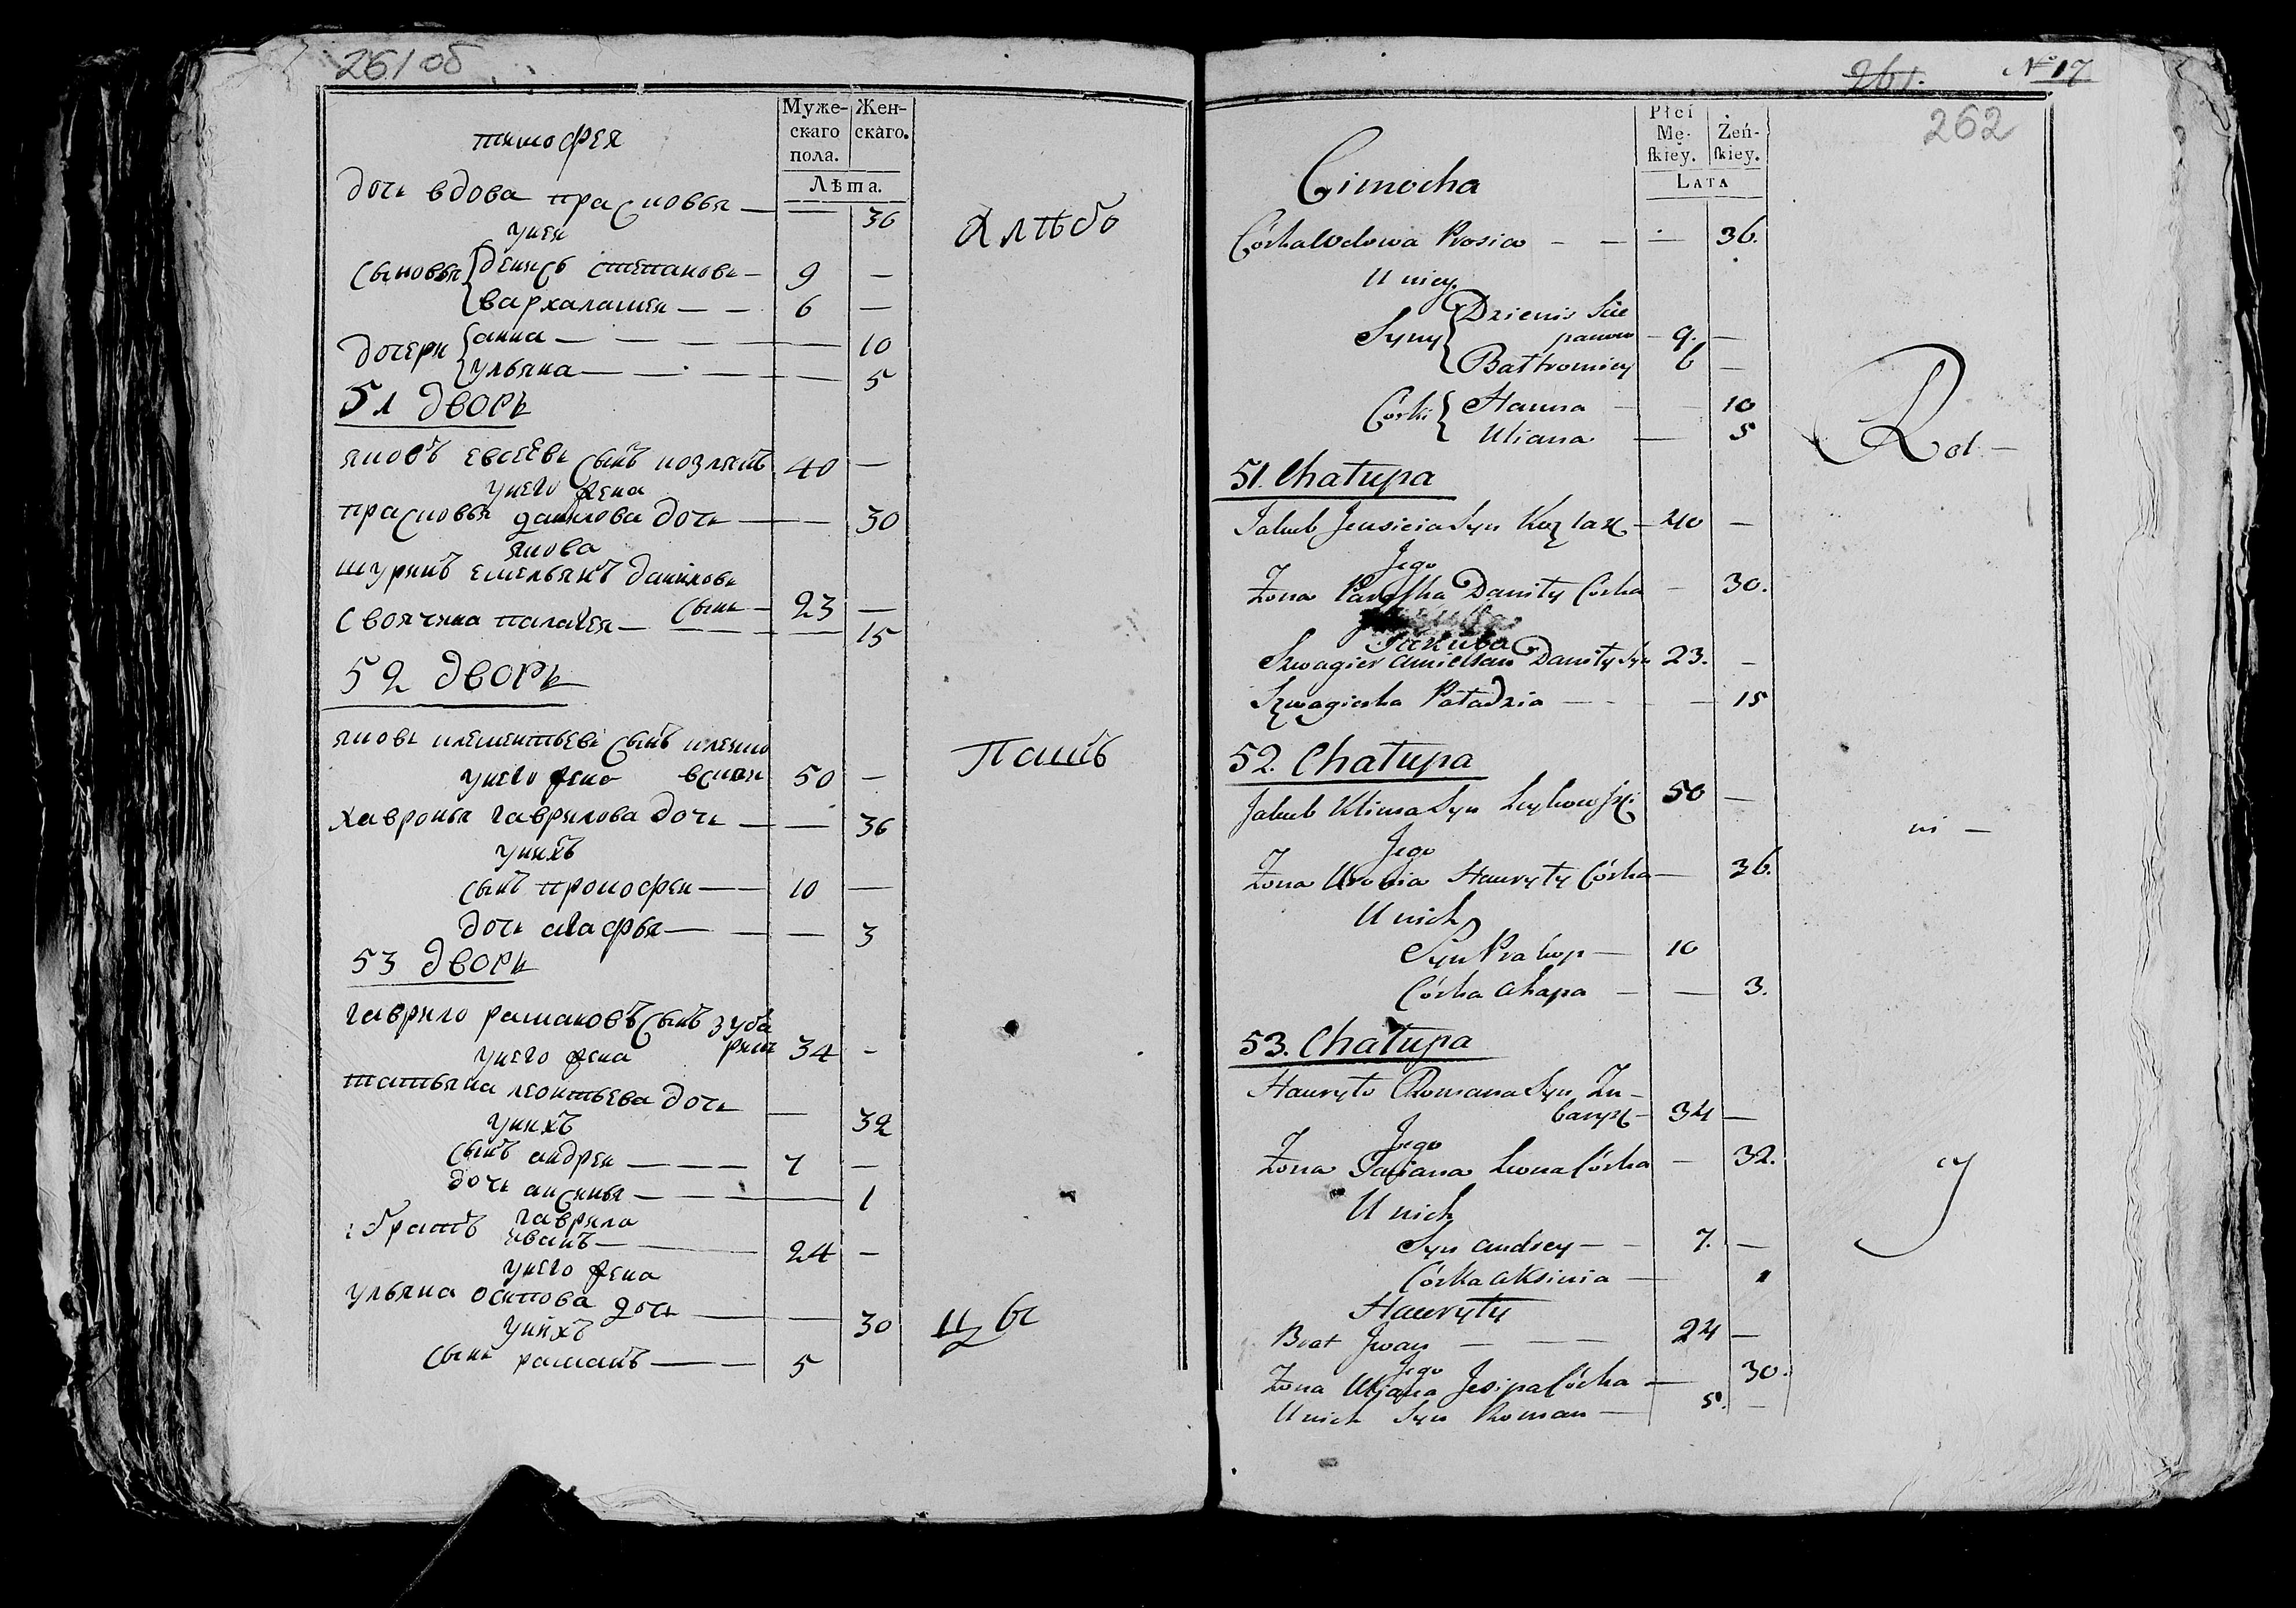 261 об
Муже-
скаго
пола.
Жен-
скаго.
Лѣта.
тимофея
дочь вдова прасковья — — 36
унея
сыновья { денисъ степановъ — 9 —
вархаламеи — — 6 —
дочери { анна — — — — 10
ульяна — — — — 5
Хлѣбо
51 дворъ
яковъ евсеевъ сынъ козлякъ 40 —
унего жена
прасковья данилова дочь — — 30
якова
шуринъ емельянъ даниловъ
сынъ — 23 —
своячина палагея — — — 15
52 дворъ
яковъ клементьевъ сынъ
унего жена 50 —
хавронья гаврилова дочь — — 36
унихъ
сынъ прокофеи — — 10 —
дочь агафья — — — 3
Пашъ
53 дворъ
гаврило рамановъ сынъ зуба
унего жена рикъ 34 —
татьяна леонтьева дочь — 32
унихъ
сынъ андреи — — — 7 —
дочь аксинья — — — 1
гаврила
братъ иванъ — — 24 —
унего жена
ульяна осипова дочь — — 30
унихъ
сынъ раманъ — — 5
цы
261.
№ 17
262
Płci
Mę-
ſkiey.
Żeń-
ſkiey.
LATA
Cimocha
Córka wdowa Prosia — — — 36.
U niey
Syny { Dzienis Ście
panow — 9. —
Bałtromiey 6 —
Córki { Hanna — — 10
Uliana — 5
Rol —
51. Chałupa
Jakub Jeusieia Syn Kozlak — 40 —
Jego
Żona Paraska Daniły Córka — 30.
Jakuba
Szwagier Amielian Daniły Syn 23. —
Szwagierka Paładzia — — — 15
52. Chałupa
Jakub Klima Syn 50 —
Jego
Żona Uronia Hauryły Córka — 36.
U nich
Syn Prakop — 10
Córka Ahapa — — 3.
ni —
53. Chałupa
Hauryło Romana Syn Zu-
baryk — 34 —
Jego
Żona Taciana Leona Córka — 32.
U nich
Syn Andrey — — 7. —
Córka Aksinia — 1
Hauryły
Brat Jwan — — — 24 —
Jego
Żona Uljana Jesipa Córka — 30.
U nich Syn Roman — 5. —
cy